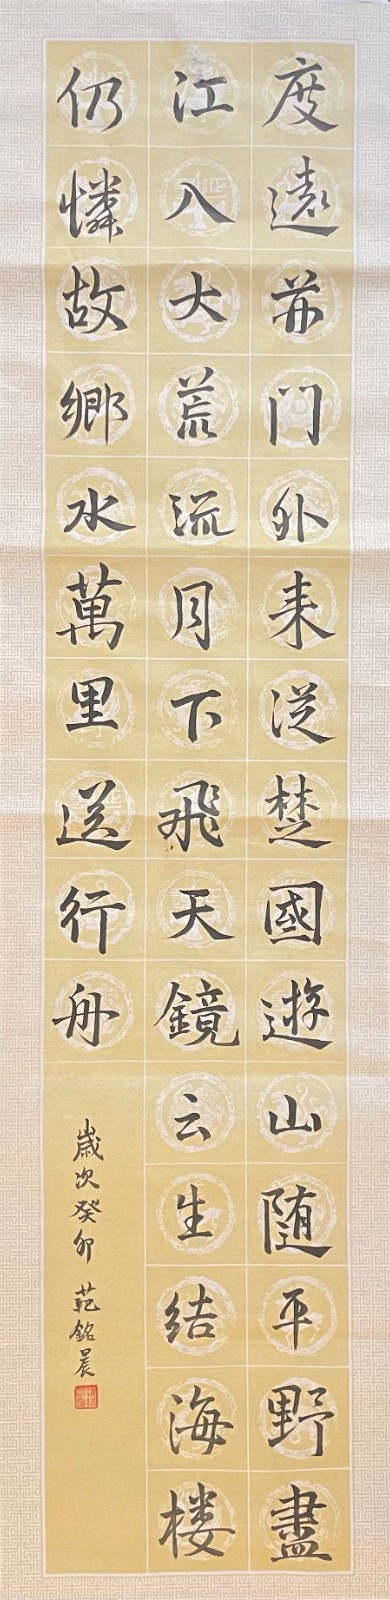 度遠荆门外来从楚國遊山随平野盡
江入大荒流月下飛天鏡云生结海楼
仍憐故鄉水萬里送行舟
歲次癸卯 范銘晨